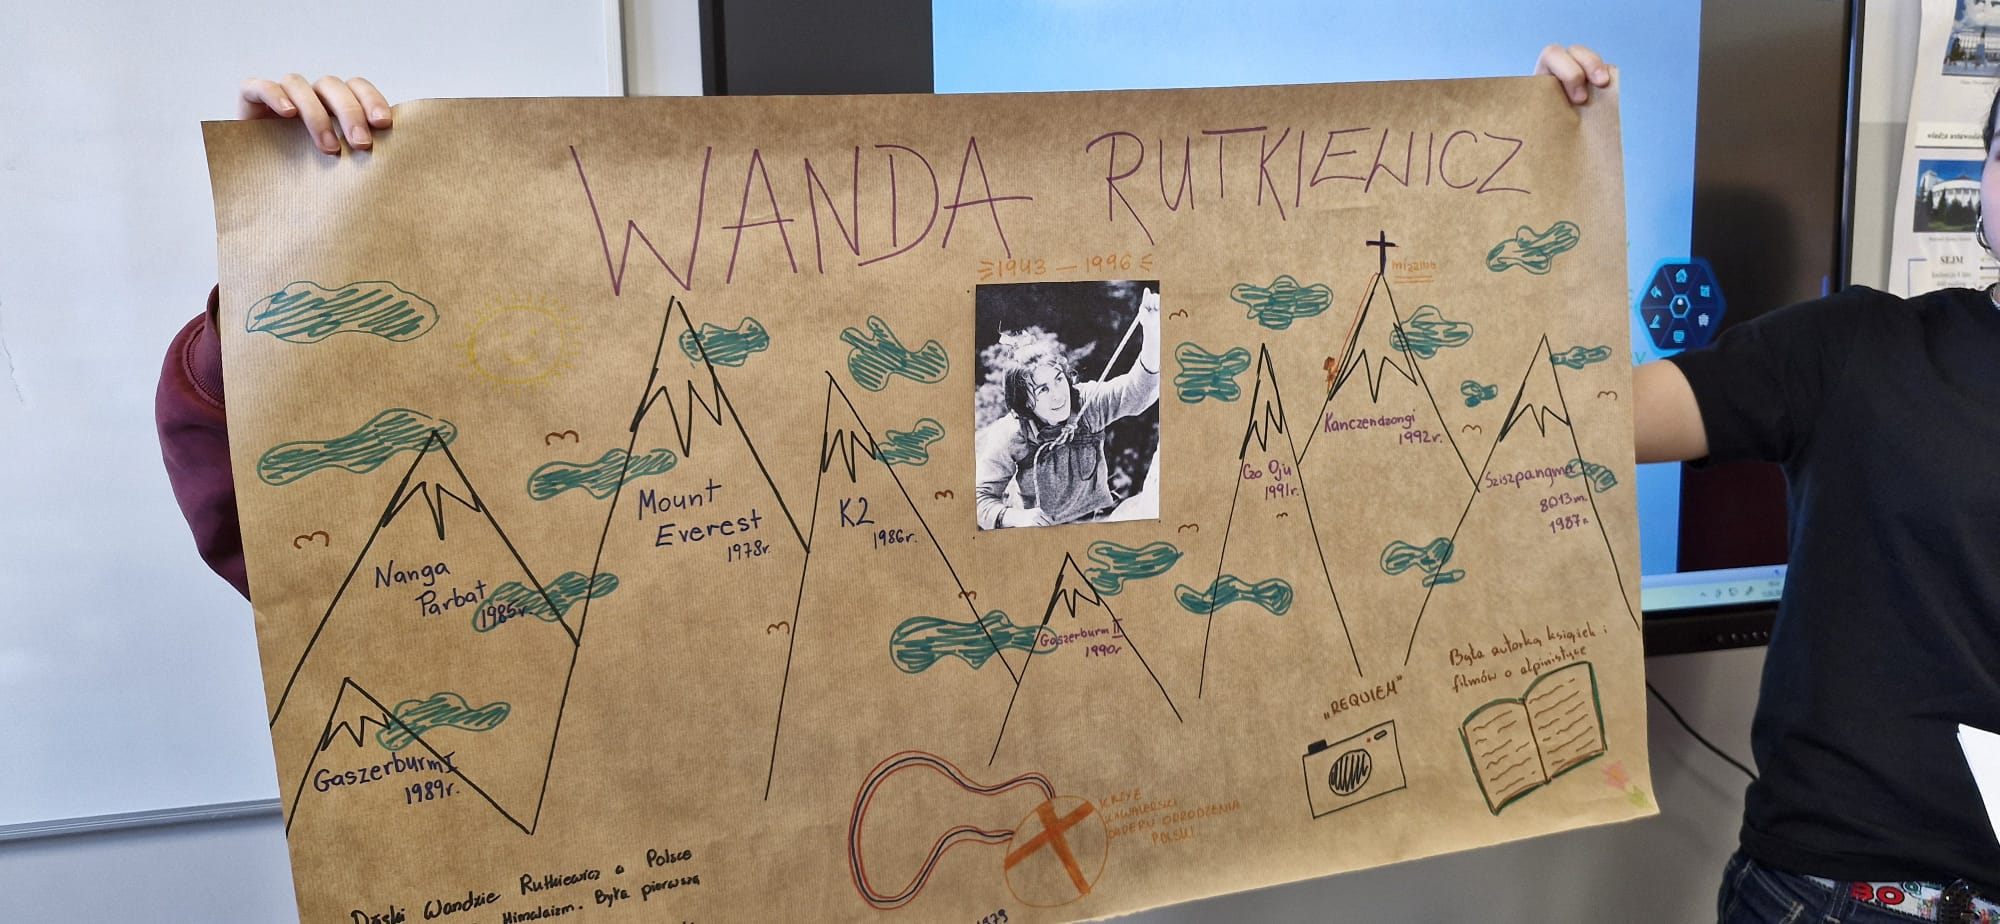 WANDA RUTKIEWICZ
1943 – 1996
Nanga
Parbat
1985r.
Gaszerburm I
1989r.
Mount
Everest
1978r.
K2
1986r.
Gaszerburm II
1990r
Czo Oju
1991r.
Kanczendzongi
1992r.
Sziszpangma
8013m.
1987r.
„REQUIEM”
Była autorką książek i
filmów o alpinistyce
KRZYŻ
KAWALERSKI
ORDERU ODRODZENIA
POLSKI
Dzięki Wandzie Rutkiewicz o Polsce
Himalaizm. Była pierwszą
1979
SEJM